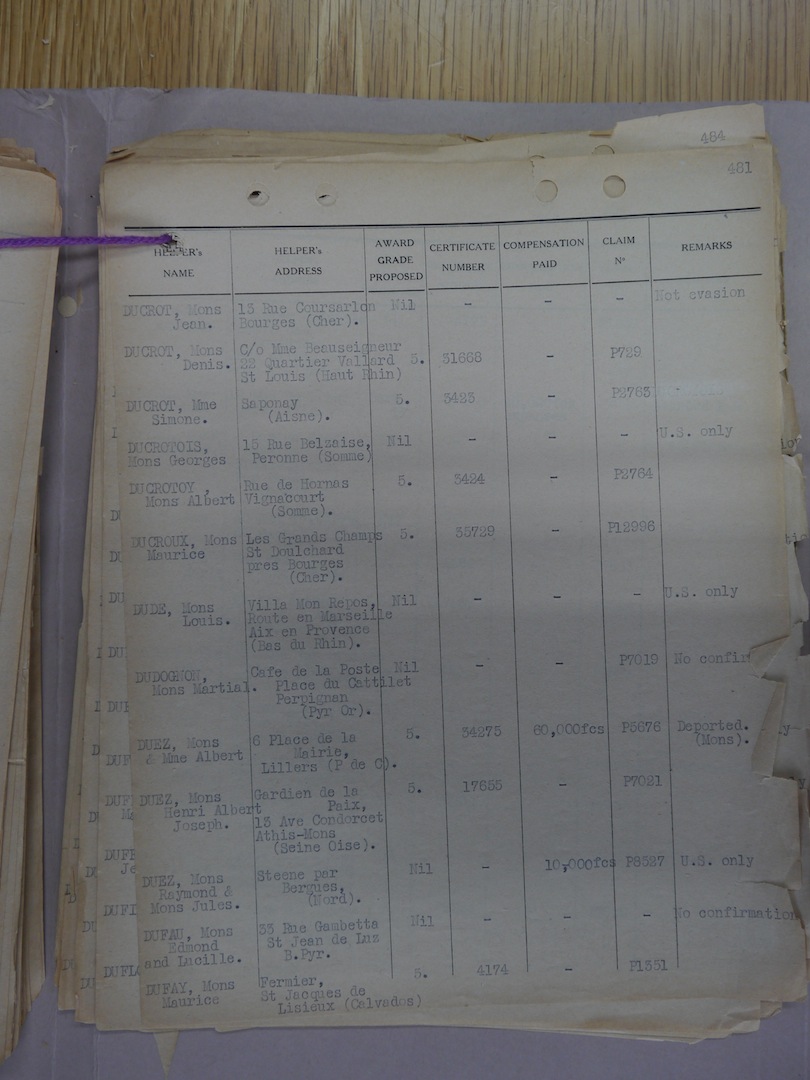 484
481
HELPER's NAME
HELPER's ADDRESS
AWARD GRADE PROPOSED
CERTIFICATE NUMBER
COMPENSATION PAID
CLAIM N°
REMARKS
DUCROT, Mons 13 Rue Coursarlon Nil - - - Not evasion
Jean. Bourges (Cher).
DUCROT, Mons C/o Mme Beauseigneur
Denis. 22 Quartier Vallard 5. 31668 - P729
St Louis (Haut Rhin)
DUCROT, Mme Saponay 5. 3423 - P2763
Simone. (Aisne).
DUCROTOIS, 15 Rue Belzaise, Nil - - - U.S. only
Mons Georges Peronne (Somme)
DUCROTOY, Rue de Hornas 5. 3424 - P2764
Mons Albert Vignacourt
(Somme).
DUCROUX, Mons Les Grands Champs 5. 35729 - P12996
Maurice St Doulchard
pres Bourges
(Cher).
DUDE, Mons Villa Mon Repos, Nil - - - U.S. only
Louis. Route en Marseille
Aix en Provence
(Bas du Rhin).
DUDOGNON, Cafe de la Poste Nil - - P7019 No confir
Mons Martial. Place du Cattilet
Perpignan
(Pyr Or).
DUEZ, Mons 6 Place de la 5. 34275 60,000fcs P5676 Deported.
& Mme Albert Mairie, (Mons).
Lillers (P de C).
DUEZ, Mons Gardien de la 5. 17655 - P7021
Henri Albert Paix,
Joseph. 13 Ave Condorcet
Athis-Mons
(Seine Oise).
DUEZ, Mons Steene par Nil - 10,000fcs P8527 U.S. only
Raymond & Bergues,
Mons Jules. (Nord).
DUFAU, Mons 33 Rue Gambetta Nil - - - No confirmation
Edmond St Jean de Luz
and Lucille. B.Pyr.
DUFAY, Mons Fermier, 5. 4174 - P1351
Maurice St Jacques de
Lisieux (Calvados)